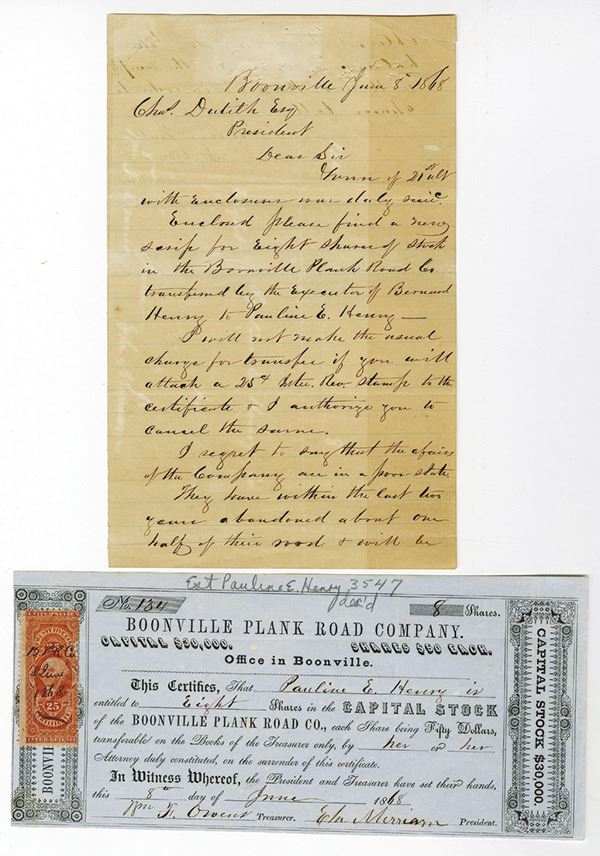 Boonville June 8 1868
Chas. Dutilh Esq
President
Dear Sir
Yours of 21st ult
with Enclosure was duly recd.
Enclosed please find a new
scrip for Eight shares of stock
in the Boonville Plank Road Co
transferred by the Executor of Bernard
Henry to Pauline E. Henry —
I will not make the usual
charge for transfer if you will
attach a 25¢ Inter. Rev. stamp to the
certificate & I authorize you to
cancel the same.
I regret to say that the affairs
of the Company are in a poor state.
They have within the last two
years abandoned about one
half of their road & will be
Est Pauline E. Henry 3547
dec'd
No. 134
8 Shares.
BOONVILLE PLANK ROAD COMPANY.
CAPITAL $30,000. SHARES $50 EACH.
Office in Boonville.
This Certifies, That Pauline E. Henry is
entitled to Eight Shares in the CAPITAL STOCK
of the BOONVILLE PLANK ROAD CO., each Share being Fifty Dollars,
transferable on the Books of the Treasurer only, by her or her
Attorney duly constituted, on the surrender of this certificate.
In Witness Whereof, the President and Treasurer have set their hands,
this 8th day of June 1868
Wm F. Owens Treasurer. Ela Merriam President.
B.P.R.Co.
8 June
1868
25
BOONVILL
CAPITAL STOCK $30,000.